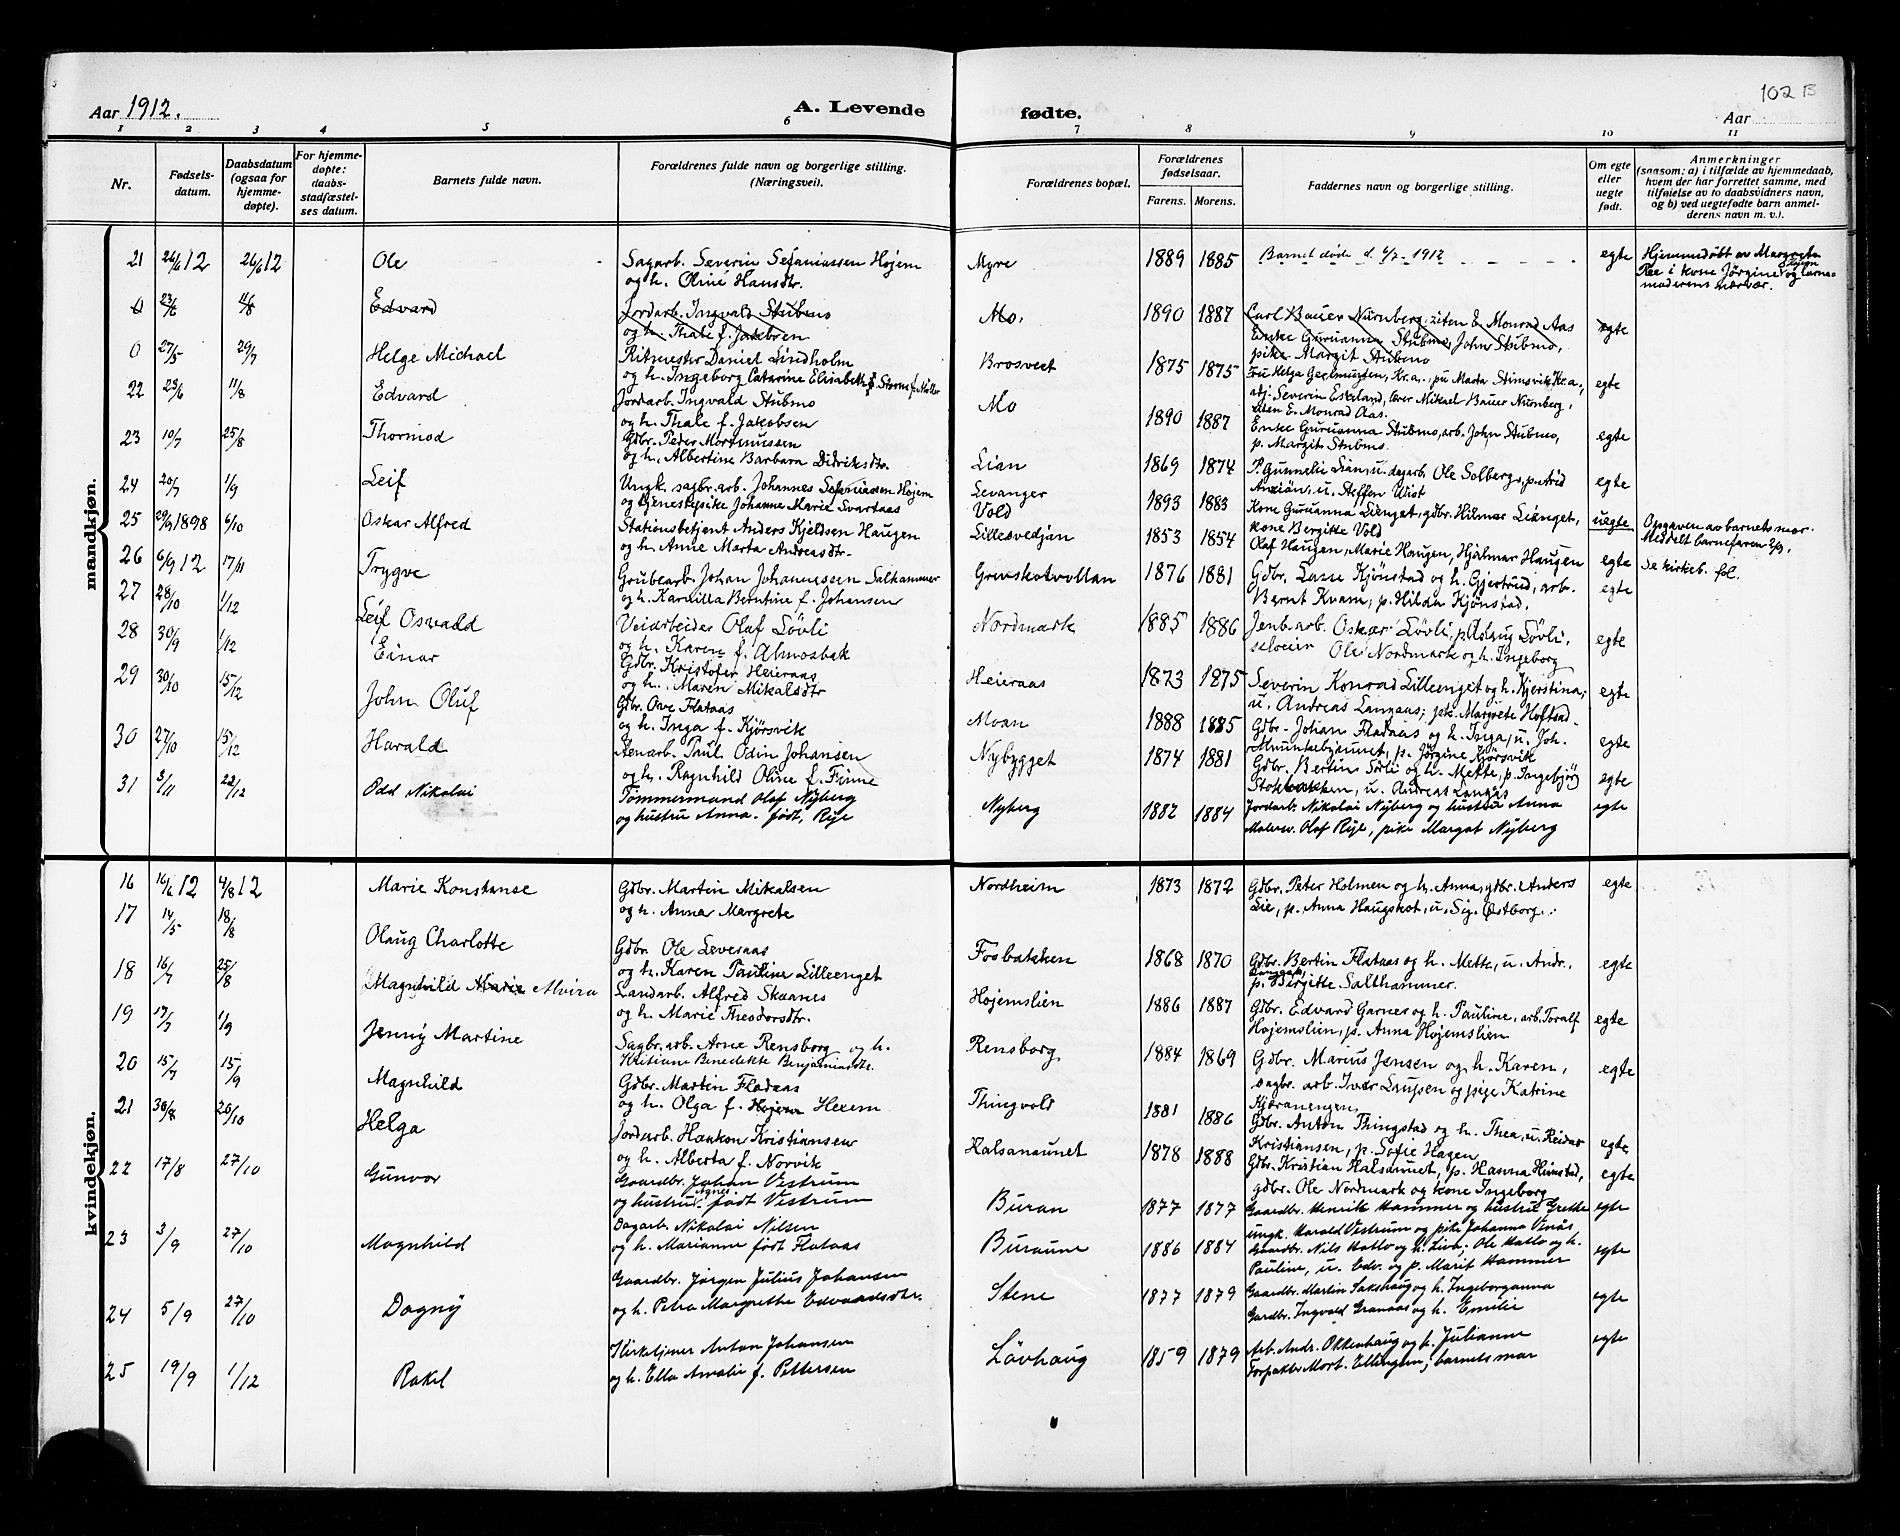 102 B
Aar 1912.
A. Levende fødte.
Aar
1 2 3 4 5 6 7 8 9 10 11
Nr.
Fødsels-
datum.
Daabsdatum
(ogsaa for
hjemme-
døpte).
For hjemme-
døpte:
daabs-
stadfæstel-
ses datum.
Barnets fulde navn.
Forældrenes fulde navn og borgerlige stilling.
(Næringsvei).
Forældrenes bopæl.
Forældrenes
fødselsaar.
Farens. Morens.
Faddernes navn og borgerlige stilling.
Om egte
eller
uegte
født.
Anmerkninger
(saasom: a) i tilfælde av hjemmedaab,
hvem der har forrettet samme, med
tilføielse av to daabsvidners navn,
og b) ved uegtefødte barn anmel-
derens navn m. v.).
mandkjøn.
21 26/6 12 26/6 12 Ole Sagarb. Severin Sefaniassen Højem Myre 1889 1885 Barnet døde d. 4/7 1912 egte Hjemmedøbt av Margrete
og h. Oline Hansdtr. Røe i kone Jørgine Højem og barne-
moderens nærvær.
0 23/6 11/8 Edvard Jordarb. Ingvald Stubmo Mo. 1890 1887 Carl Bauer Nürnberg, E. Monrad Aas egte
og h. Thale f. Jakobsen Enke Guruanna Stubmo, John Stubmo,
pike Margit Stubmo
0 27/5 29/7 Helge Michael Ritmester Daniel Lindholm Brosveet 1875 1875 Fru Helga Geelmuyden, Kr.a., Marta Stimsvik Kr.a., egte
og h. Ingeborg Catarine Elisabeth Storm f. Møller adj. Severin Eskeland, lærer Mikael Bauer Nürnberg,
22 23/6 11/8 Edvard Jordarb. Ingvald Stubmo Mo 1890 1887 E. Monrad Aas. egte
og h. Thale f. Jakobsen Enke Guruanna Stubmo, arb. John Stubmo,
p. Margit Stubmo.
23 10/7 25/8 Thormod Gdbr. Peder Mortinussen Lian 1869 1874 P. Gunnelie Lian, u. dagarb. Ole Solberg, p. egte
og h. Albertine Barbara Didriksdtr. u. Steffen Wist
24 20/7 1/9 Leif Ungk. sagbr.arb. Johannes Sefaniassen Højem Levanger 1893 1883 Kone Guruanna Lienget, gdbr. Hilmar Lienget, uegte Opgaven av barnets mor.
og tjenestepike Johanne Marie Svartaas Vold kone Bergitte Vold Meddelt barnefaren 2/9.
25 29/9 1898 6/10 Oskar Alfred Stationsbetjent Anders Kjeldsen Haugen Lillesvedjan 1853 1854 Olaf Haugen, Marie Haugen, Hjalmar Haugen egte Se kirkeb. fol.
og h. Anne Marta Andreasdtr.
26 6/9 12 17/11 Trygve Grubearb. Johan Johannessen Salhammer Grinskotvollan 1876 1881 Gdbr. Lasse Kjønstad og h. Gjertrud, arb. egte
og h. Karnilla Berntine f. Johansen Bernt Kvam, p. Hilda Kjønstad.
27 28/10 1/12 Leif Osvald Veiarbeider Olaf Løvli Nordmark 1885 1886 Jenb.arb. Oskar Løvli, p. Aslaug Løvli, egte
og h. Karen f. Almosbak selveier Ole Nordmark og h. Ingeborg
28 30/9 1/12 Einar Gdbr. Kristofer Heieraas Heieraas 1873 1875 Severin Konrad Lilleenget og h. Kjerstina, egte
og h. Maren Mikalsdtr u. Andreas Langaas; pk. Margrete Hoftad.
29 30/10 15/12 John Oluf Gdbr. Ove Flataas Moan 1888 1885 Gdbr. Johan Fladaas og h. Inga, u. Joh. egte
og h. Inga f. Kjørsvik p. Jørgine Kjørsvik
30 27/10 15/12 Harald Jenarb. Paul Odin Johansen Nybygget 1874 1881 Gdbr. Bertin Sørli og h. Mette, p. Ingebjørg egte
og h. Ragnhild Oline f. Finne Stokbakken, u. Andreas Langås
31 3/11 22/12 Odd Nikolai Tømmermand Olaf Nyberg Nyberg 1882 1884 Jordarb. Nikolai Nyberg og hustru Anna egte
og hustru Anna. født, Rye Malersv. Olaf Rye, pike Margot Nyberg
kvindekjøn.
16 16/6 12 4/8 12 Marie Konstanse Gdbr. Martin Mikalsen Nordheim 1873 1872 Gdbr. Peter Holmen og h. Anna, gdbr. Anders egte
og h. Anna Margrete Lie, p. Anna Haugskot, u. Sig. Østborg.
17 14/5 18/8 Olaug Charlotte Gdbr. Ole Leveraas Fosbakken 1868 1870 Gdbr. Bertin Flataas og h. Mette, u. Andr. egte
og h. Karen Pauline Lilleenget Langaas, p. Birgitte Salthammer.
18 16/7 25/8 Magnhild Marie Alvira Landarb. Alfred Skaanes Højemslien 1886 1887 Gdbr. Edvard Garnes og h. Pauline, arb. Toralf egte
og h. Marie Theodorsdtr. Højemslien, p. Anna Højemslien
19 17/7 1/9 Jenny Martine Sagbr. arb. Arne Rensborg og h. Rensborg 1884 1869 Gdbr. Marius Jensen og h. Karen, egte
Kristiane Benedikte Benjaminsdtr. sagbr. arb. Ivar Laupsen og pige Katrine
20 15/7 15/9 Magnhild Gdbr. Martin Fladaas Thingvold 1881 1886 Gdbr. Anton Thingstad og h. Thea, u. Reidar egte
og h. Olga f. Højem Hexem Kristiansen, p. Sofie Hagen
21 30/8 20/10 Helga Jordarb. Haakon Kristiansen Halsanaunet 1878 1888 Gdbr. Kristian Halsaunet, p. Hanna Himstad, egte
og h. Alberta f. Norvik gdbr. Ole Nordmark og kone Ingeborg
22 17/8 27/10 Gunvor Gaardbr. Johan Vestrum Buran 1877 1877 Gaardbr. Henrik Hammer og hustru Grethe egte
og hustru Agnes født Vestrum ungk. Harald Vestrum og pike Johanna Venås
23 3/9 27/10 Magnhild Dagarb. Nikolai Nilsen Buraune 1886 1884 Gaardbr. Nils Hatlo og h. Liva; Ole Hatlo og h. egte
og h. Marianne født Flataas Pauline, u. Edv. og p. Marit Hammer
24 5/9 27/10 Dagny Gaardbr. Jørgen Julius Johansen Stene 1877 1879 Gaardbr. Martin Sakshaug og h. Ingeboranna egte
og h. Petra Margrethe Edvardsdtr. Gardbr. Ingvald Granaas og h. Emilie
25 19/9 1/12 Rakel Kirketjener Anton Johansen Løvhaug 1859 1879 Arb. Andr. Okkenhaug og h. Julianne egte
og h. Ella Amalie f. Pettersen Forpakter Mort. Ellingsen; barnets mor